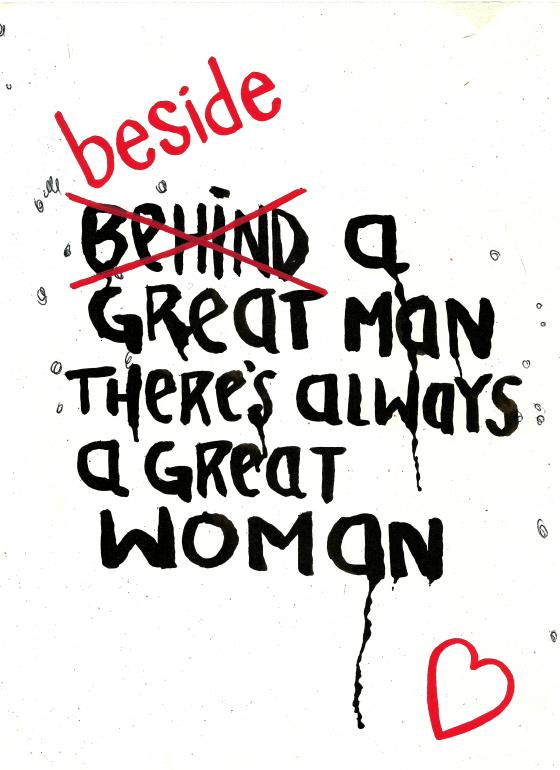 beside
BeHiND a
GReaT MaN
THeRe's aLWaYS
a GReaT
WOMaN